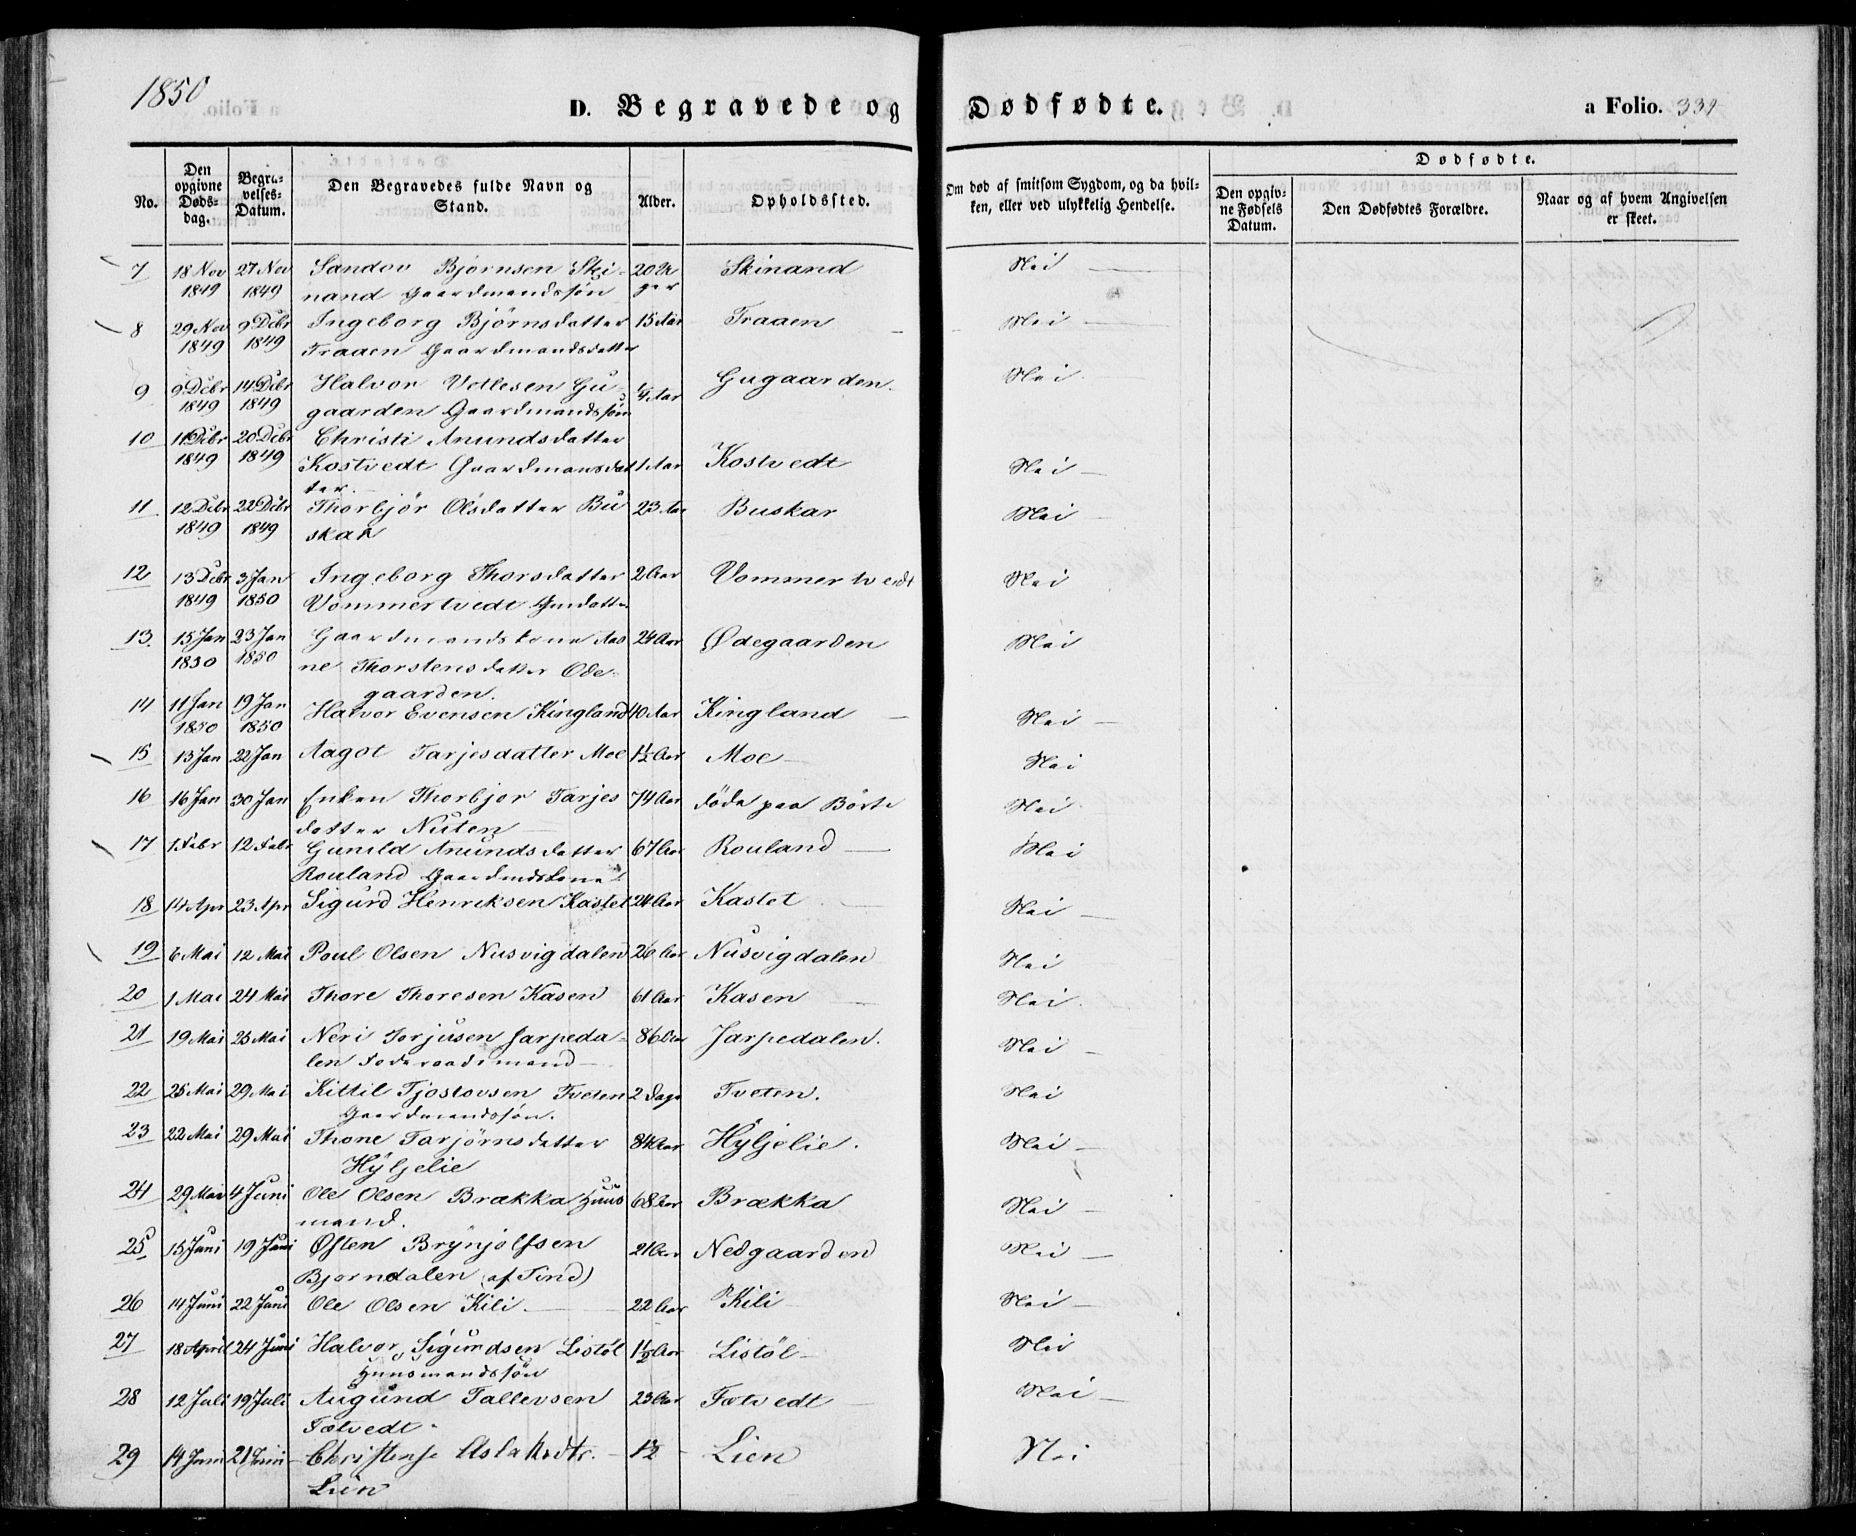 1850
D. Begravede og Dødfødte.
a Folio. 334
No.
Den opgivne Døds-dag.
Begra-velses-Datum.
Den Begravedes fulde Navn og Stand.
Alder.
Opholdssted.
Om død af smitsom Sygdom, og da hvil-ken, eller ved ulykkelig Hendelse.
Dødfødte.
Den opgiv-ne Fødsels Datum.
Den Dødfødtes Forældre.
Naar og af hvem Angivelsen er skeet.
7 18 Nov 27 Nov Sandov Bjørnsen Ski- 20 Skinand Nei
1849 1849 nand Gaardmandssøn
8 29 Nov 9 Debr Ingeborg Bjørnsdatter 15 Aar Traaen Nei
1849 1849 Traaen Gaardmandsdatter
9 9 Debr 14 Debr Halvor Vetlesen Gu- 1/4 Aar Gugaarden Nei
1849 1849 gaarden Gaardmandssøn
10 11 Debr 20 Debr Christi Anundsdatter
1849 1849 Kostvedt Gaardmansdat 1 Aar Kostvedt Nei
ter.
11 12 Debr 22 Debr Thorbjør Olsdatter Bu 23 Aar Buskar Nei
1849 1849 skar
12 13 Debr 3 Jan Ingeborg Thorsdatter 2 Aar Vommertvedt Nei
1849 1850 Vommertvedt Gmdatter
13. 15 Jan 23 Jan Gaardmandskone Aas 24 Aar Ødegaarden Nei
1850 1850 ne Thorstensdatter Ode-
gaarden.
14 11 Jan 19 Jan Halvor Evensen Kingland 40 Aar Kingland Nei
1850 1850
15 13 Jan 22 Jan Aagot Tarjesdatter Moe 1½ Aar Moe Nei
16 16 Jan 30 Jan Enken Thorbjor Tarjes 74 Aar døde paa Börte Nei
datter Nuten
17 1 Febr 12 Febr Gunild Anundsdatter 67 Aar Rouland Nei
Rouland Gaardmdskone
18 14 Apr 23 Apr Sigurd Henriksen Kastet 24 Aar Kastet Nei
19 6 Mai 12 Mai Poul Olsen Nusvigdalen 26 Aar Nusvigdalen Nei
20 1 Mai 24 Mai Thore Thoresen Kasen 61 Aar Kasen Nei
21 19 Mai 25 Mai Neri Torjusen Jarpeda- 86 Aar Jarpedalen. Nei
len Føderaadsmand
22 25 Mai 29 Mai Kittil Tjostovsen Tveten 2 Dage Tveten. Nei
Gaardmandssøn.
23 22 Mai 29 Mai Thone Tarjörnsdatter 84 Aar Hyljelie. Nei
Hyljelie
24 29 Mai 4 Juni Ole Olsen Brækka Huus 68 Aar Brækka Nei
mand.
25 15 Juni 19 Juni Østen Brynjolfsen 21 Aar Nedgaarden Nei
Bjorndalen (af Tind)
26 14 Juni 22 Juni Ole Olsen Kili. 22 Aar Kili Nei
27 18 April 24 Juni Halvor Sigurdsen Listøl 1½ Aar Listöl Nei
Huusmandssøn
28 12 Juli 19 Juli Augund Tallevsen 23 Aar Fætvedt Nei
Fætvedt
29 14 Juni 21 Juni Christense Aslaksdtr. 1½ Lien Nei
Lien